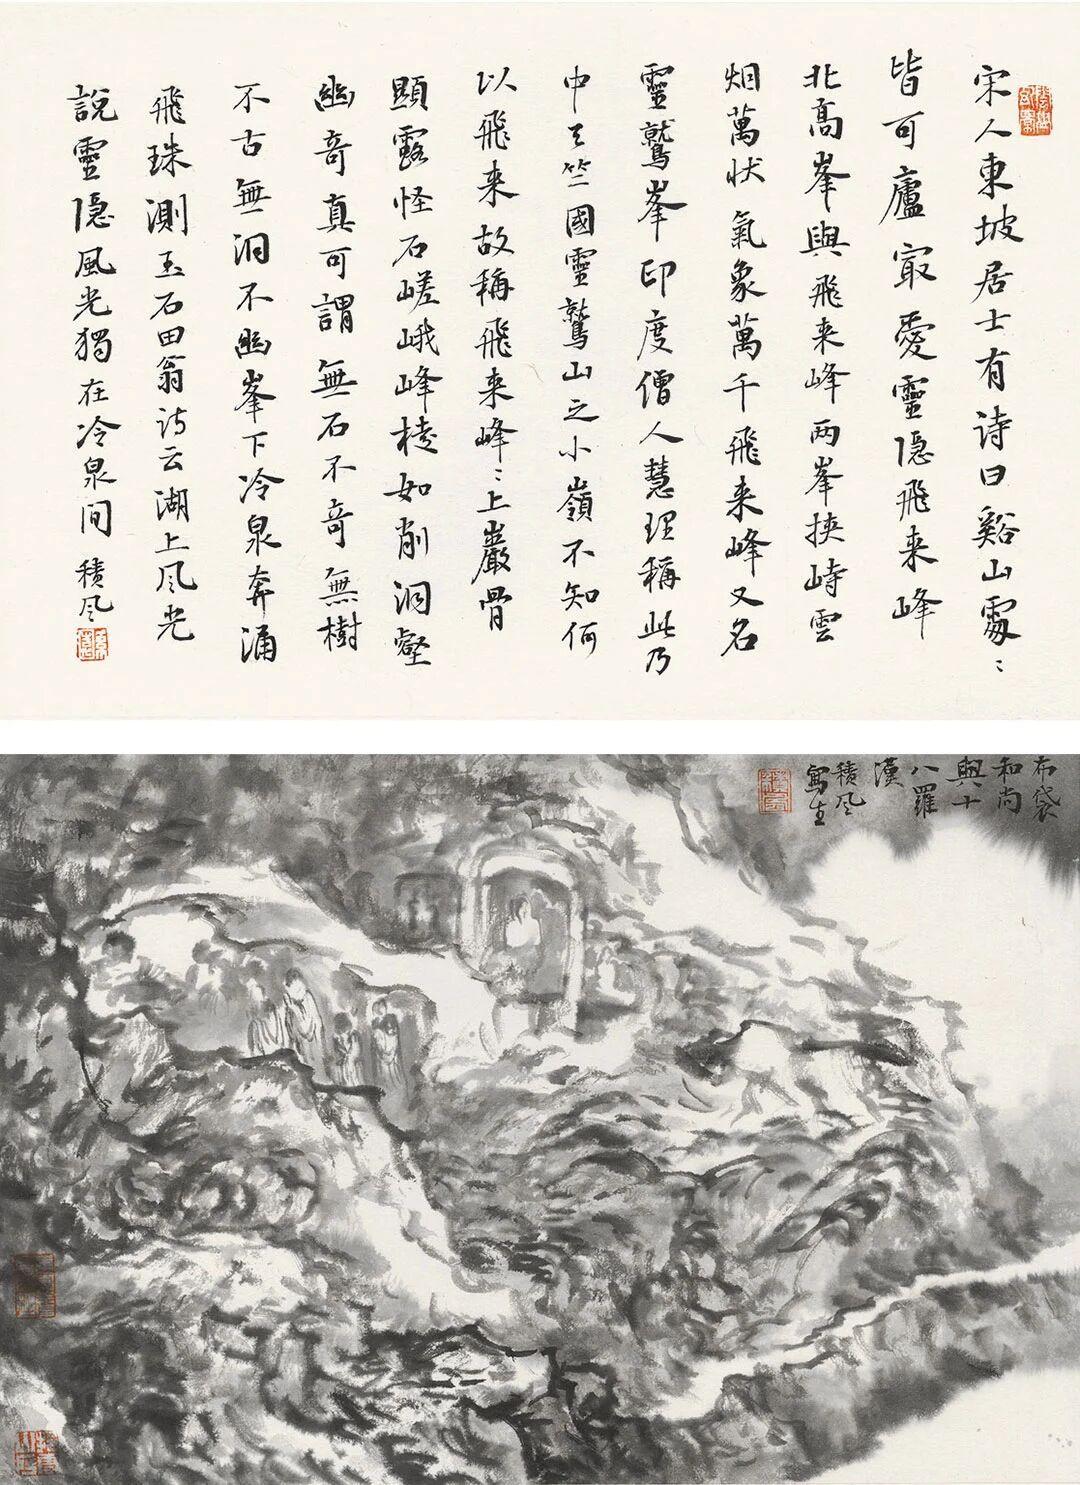 宋人東坡居士有詩曰谿山處〻
皆可廬寂愛靈隱飛来峰
北高峯與飛来峰两峯挾峙雲
烟萬狀氣象萬千飛来峰又名
靈鷲峯印度僧人慧理稱此乃
中天竺國靈鷲山之小嶺不知何
以飛来故稱飛来峰〻上巖骨
顯露怪石嵯峨峰棱如削洞壑
幽奇真可謂無石不奇無樹
不古無洞不幽峯下冷泉奔涌
飛珠測玉石田翁诗云湖上风光
說靈隐風光獨在冷泉间 積风
布袋
和尚
與十
八羅
漢
積风
寫生